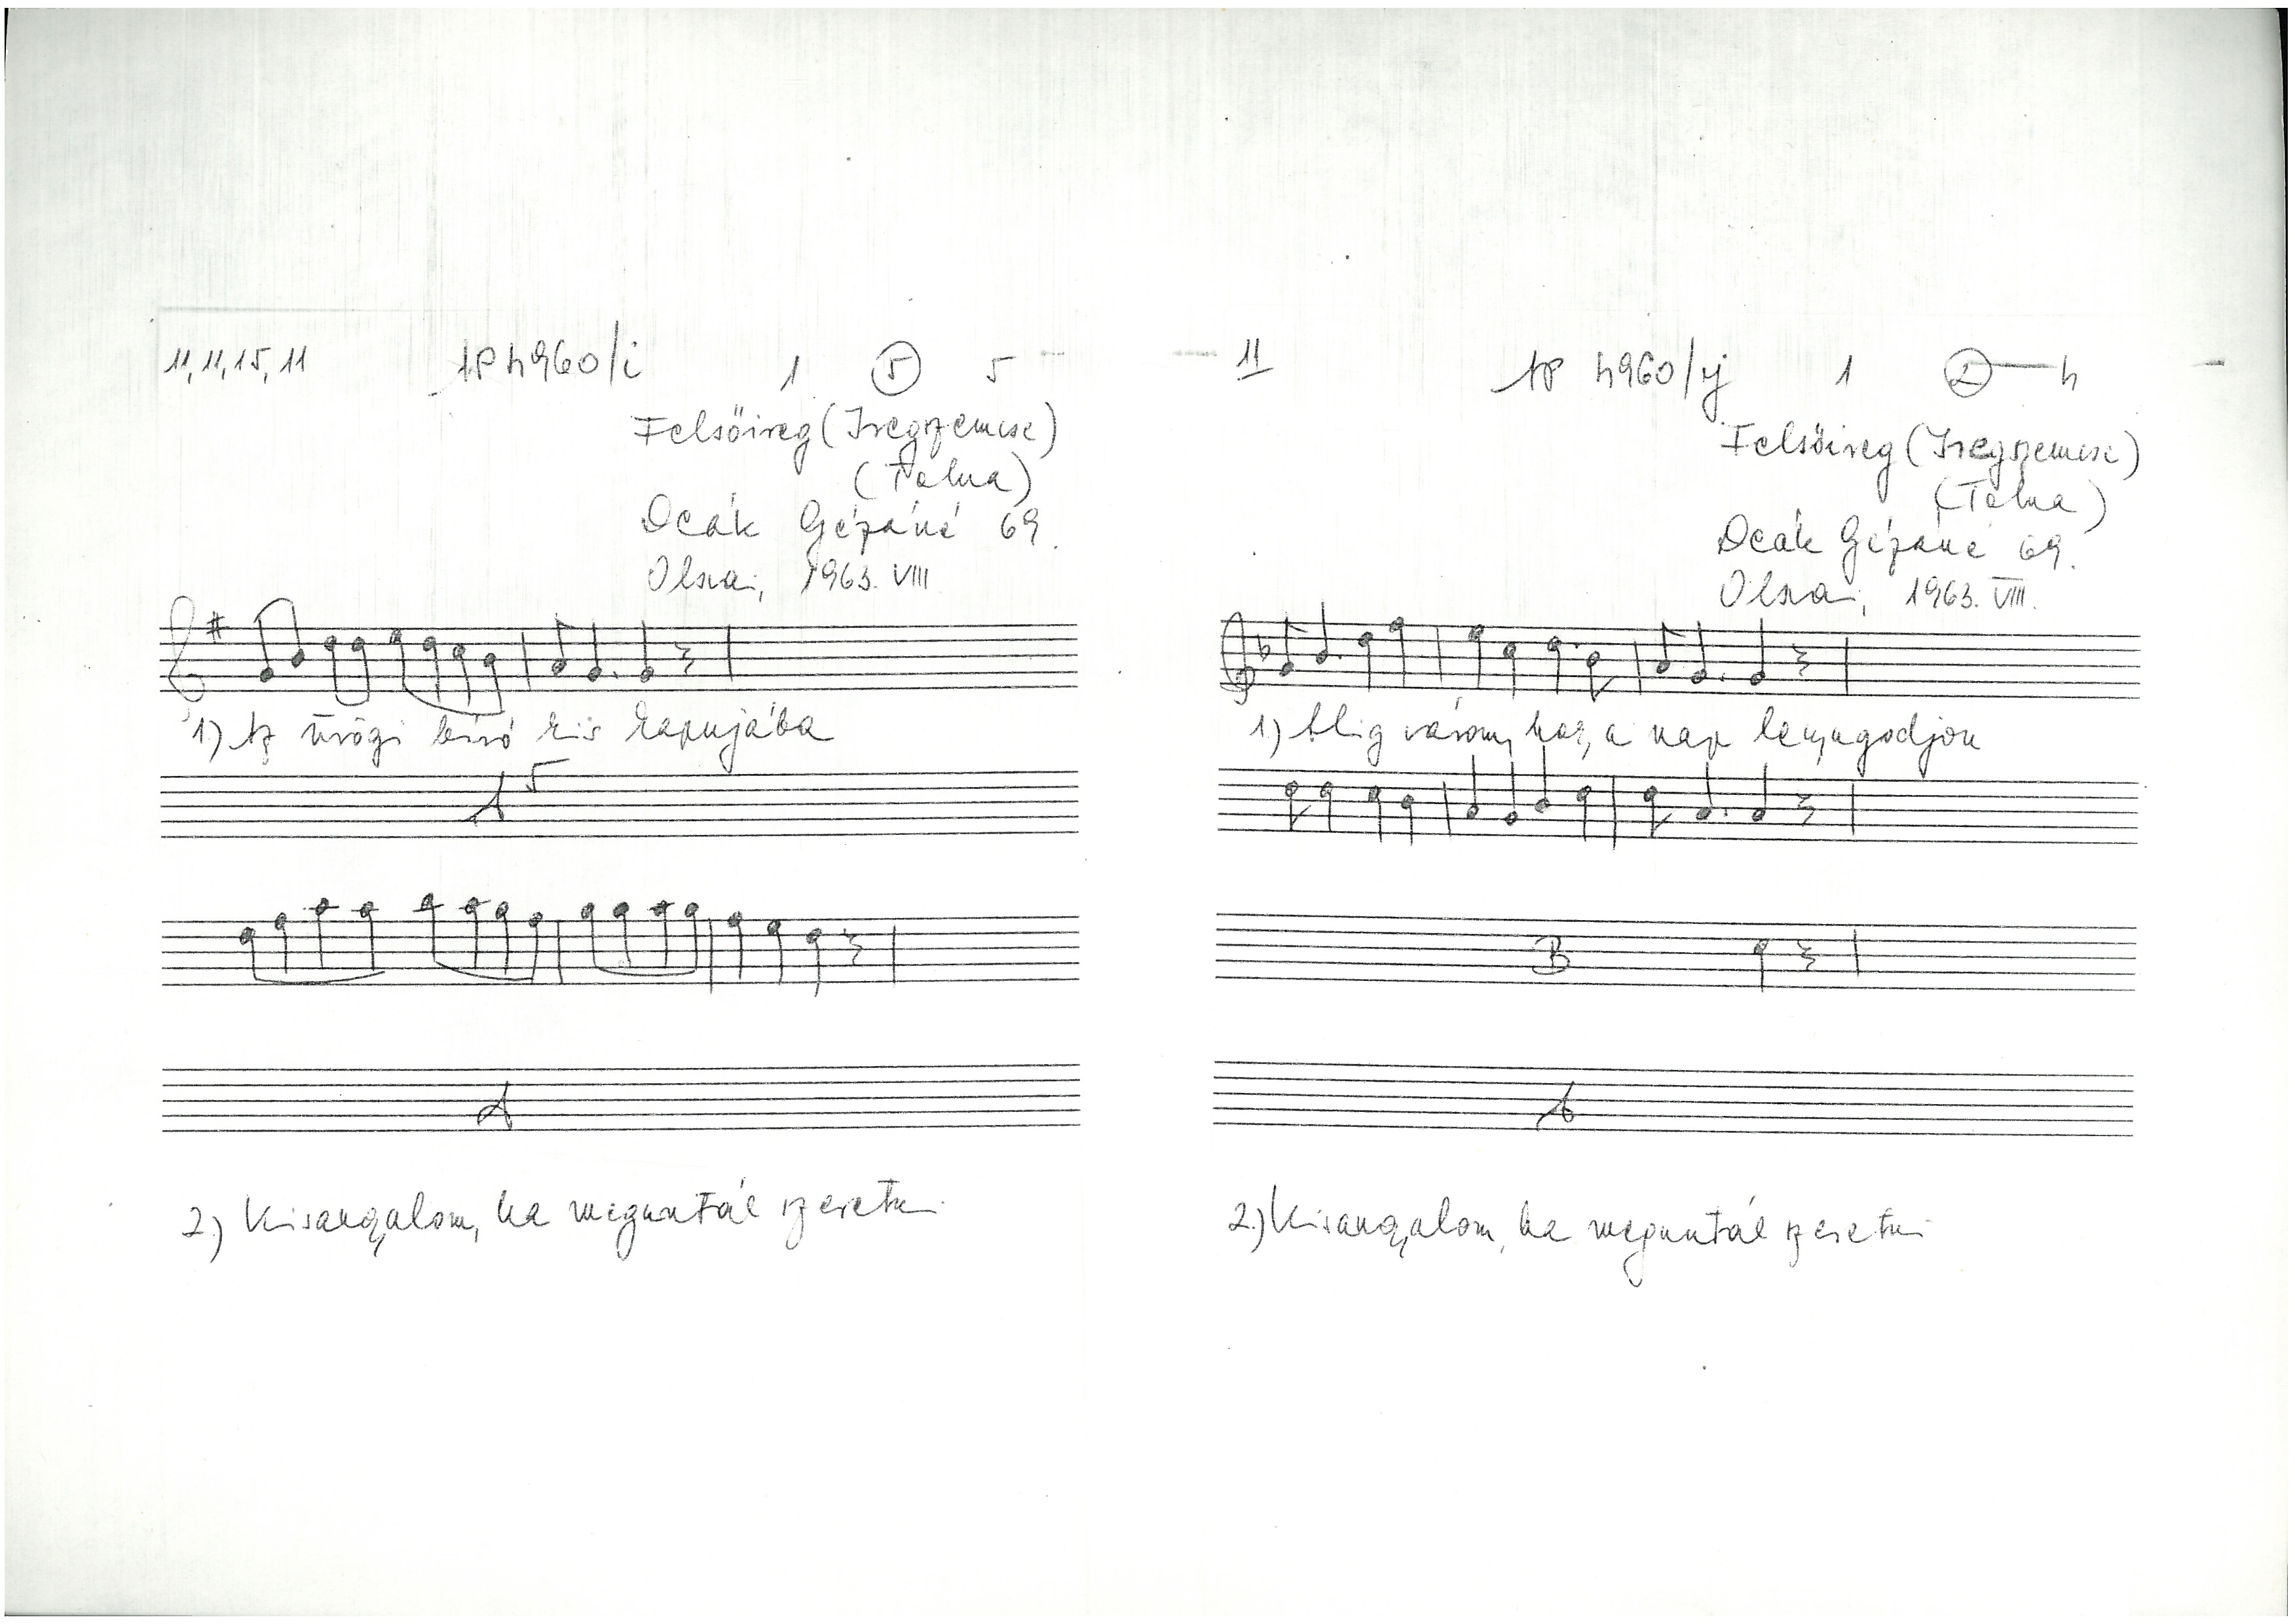 11, 11, 15, 11 AP 4960/i 1 5 5
Felsőireg (Iregszemcse)
(Tolna)
Deák Gézáné 69.
Olsvai, 1963. VIII
1) Az ürögi bíró kis kapujába
A 5
A
2) Kisangyalom, ha meguntál szeretni
11 AP 4960/j 1 2 4
Felsőireg (Iregszemcse)
(Tolna)
Deák Gézáné 69.
Olsvai, 1963. VIII.
1) Alig várom, hogy a nap lenyugodjon
B
A
2.) Kisangyalom, ha meguntál szeretni